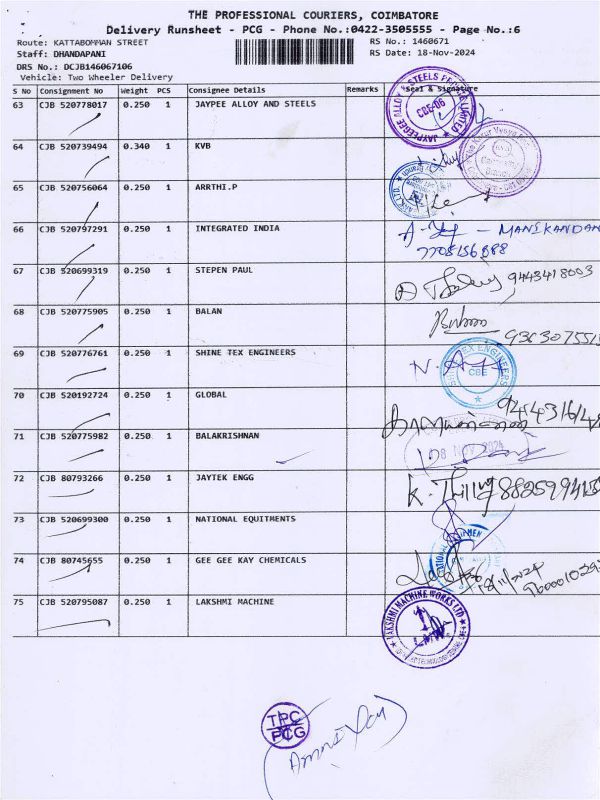 THE PROFESSIONAL COURIERS, COIMBATORE
Delivery Runsheet - PCG - Phone No.:0422-3505555 - Page No.:6
Route: KATTABOMMAN STREET RS No.: 1460671
Staff: DHANDAPANI RS Date: 18-Nov-2024
DRS No.: DCJB146067106
Vehicle: Two Wheeler Delivery
S No Consignment No Weight PCS Consignee Details Remarks Seal & Signature
63 CJB 520778017 0.250 1 JAYPEE ALLOY AND STEELS
CBE-06
64 CJB 520739494 0.340 1 KVB
65 CJB 520756064 0.250 1 ARRTHI.P
66 CJB 520797291 0.250 1 INTEGRATED INDIA - MANIKANDAN
67 CJB 520699319 0.250 1 STEPEN PAUL 9443418003
68 CJB 520775905 0.250 1 BALAN
69 CJB 520776761 0.250 1 SHINE TEX ENGINEERS
CBE
70 CJB 520192724 0.250 1 GLOBAL
71 CJB 520775982 0.250 1 BALAKRISHNAN
18 NOV 2024
72 CJB 80793266 0.250 1 JAYTEK ENGG
73 CJB 520699300 0.250 1 NATIONAL EQUITMENTS
74 CJB 80745655 0.250 1 GEE GEE KAY CHEMICALS
18/11/2024
75 CJB 520795087 0.250 1 LAKSHMI MACHINE
LAKSHMI MACHINE WORKS LTD
LMW
TPC
PCG